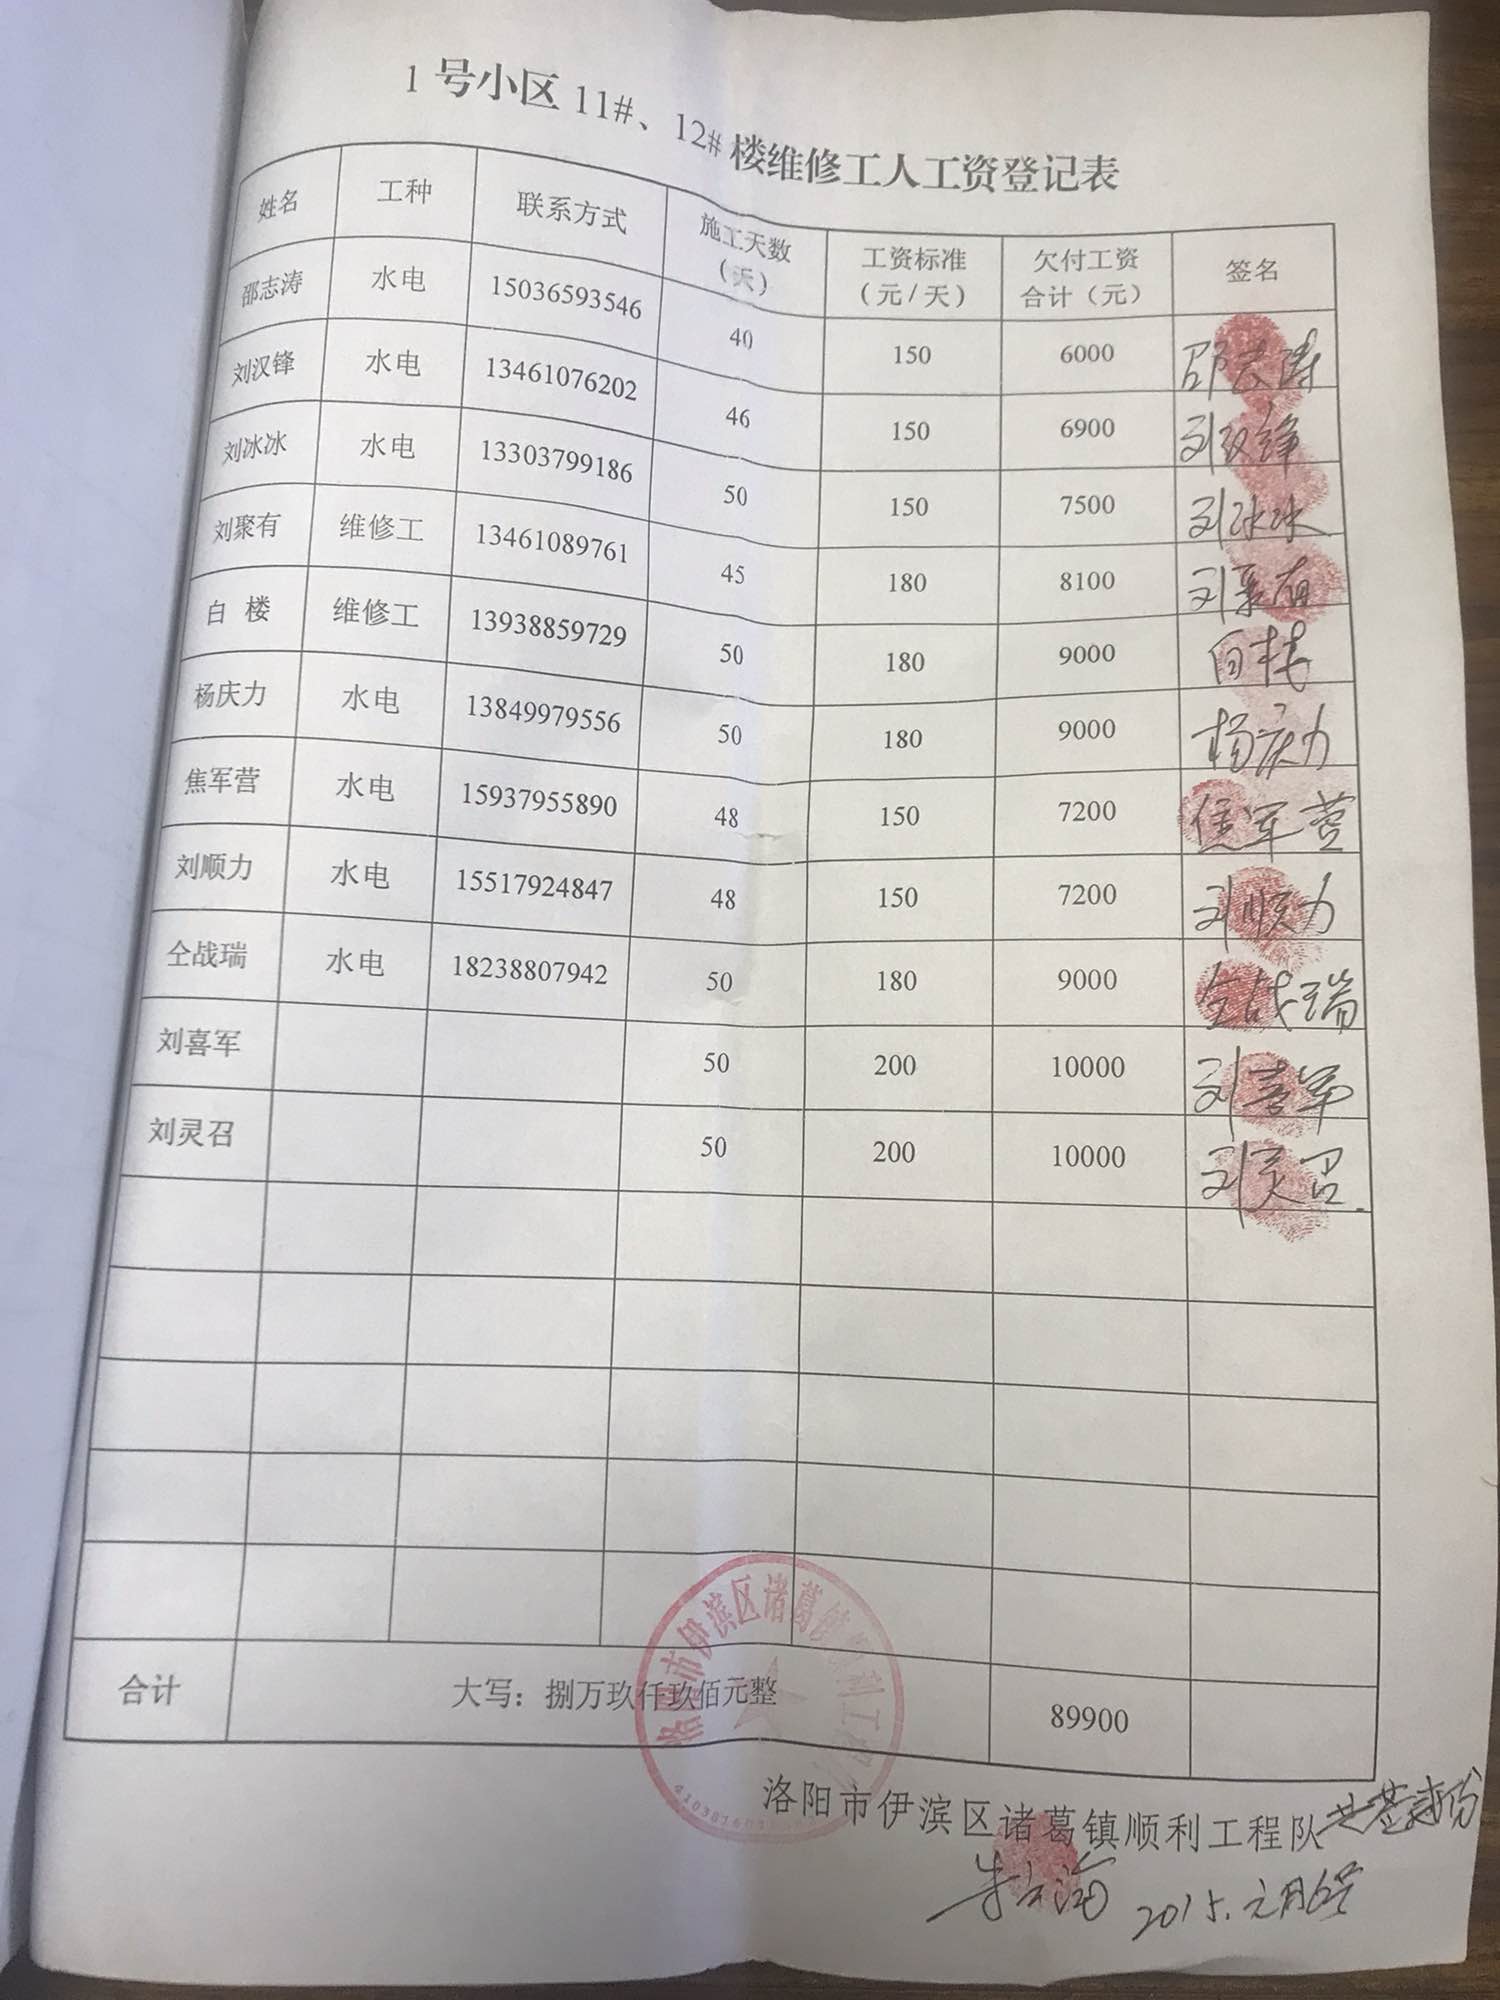 1号小区11#、12#楼维修工人工资登记表
姓名 工种 联系方式 施工天数（天） 工资标准（元/天） 欠付工资合计（元） 签名
邵志涛 水电 15036593546 40 150 6000 邵志涛
刘汉锋 水电 13461076202 46 150 6900 刘汉锋
刘冰冰 水电 13303799186 50 150 7500 刘冰冰
刘聚有 维修工 13461089761 45 180 8100 刘聚有
白 楼 维修工 13938859729 50 180 9000 白楼
杨庆力 水电 13849979556 50 180 9000 杨庆力
焦军营 水电 15937955890 48 150 7200 焦军营
刘顺力 水电 15517924847 48 150 7200 刘顺力
仝战瑞 水电 18238807942 50 180 9000 仝战瑞
刘喜军 50 200 10000 刘喜军
刘灵召 50 200 10000 刘灵召
合计 大写：捌万玖仟玖佰元整 89900
洛阳市伊滨区诸葛镇顺利工程队
洛阳市伊滨区诸葛镇顺利工程队
2015.元月6号